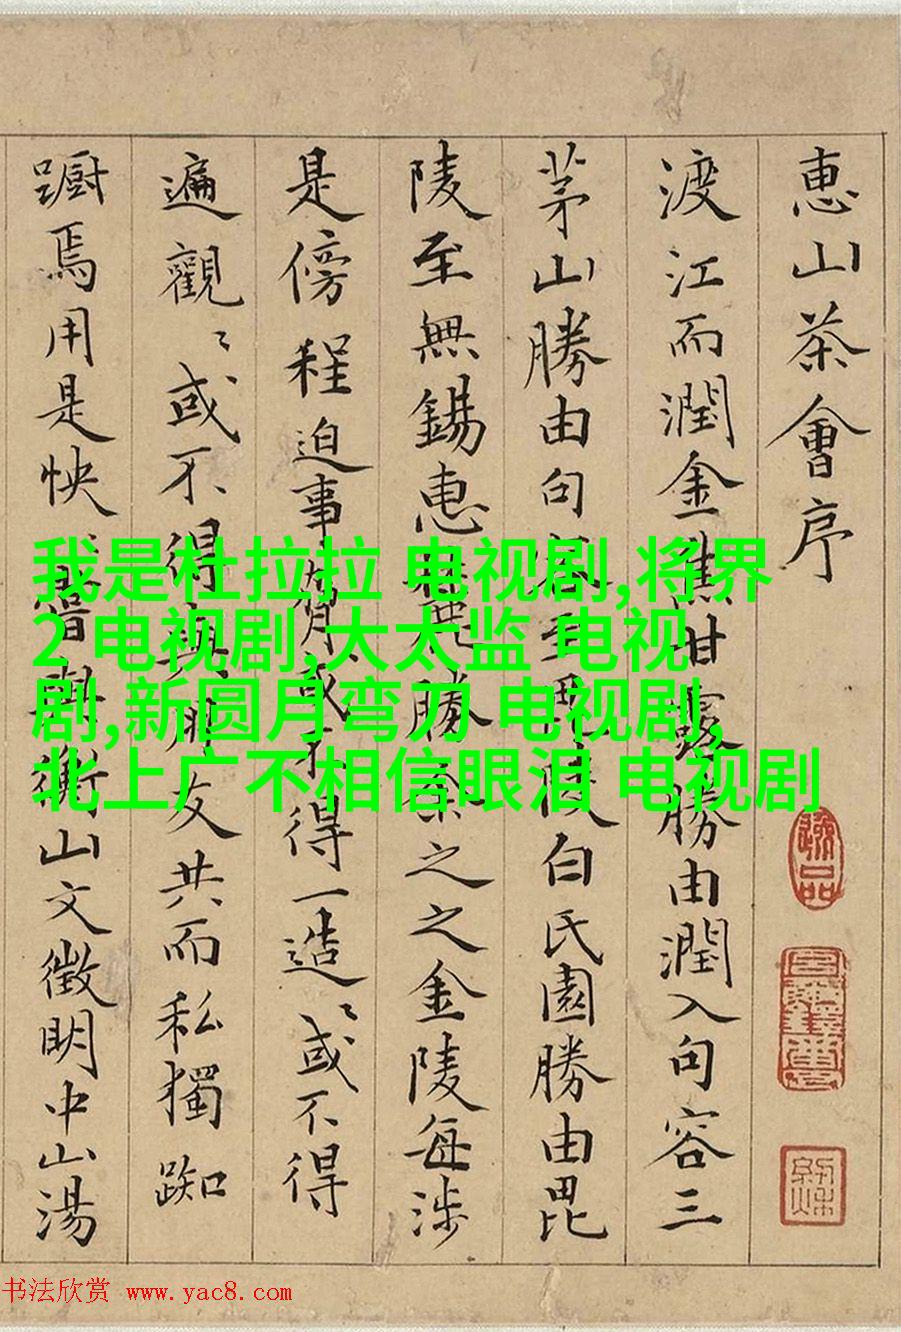 惠山茶會序
渡江而潤金焦甘露勝由潤入句容三
茅山勝由句容至毘陵白氏園勝由毘
陵至無錫惠麓勝余之之金陵每涉
是傍程迫事或不得一造〻或不得
遍觀〻或不得與朋友共而私獨踟
躕焉用是怏嘗與衡山文徵明中山湯
我是杜拉拉 电视剧,将界
2 电视剧,大太监 电视
剧,新圆月弯刀 电视剧,
北上广不相信眼泪 电视剧
书法欣赏 www.yac8.com